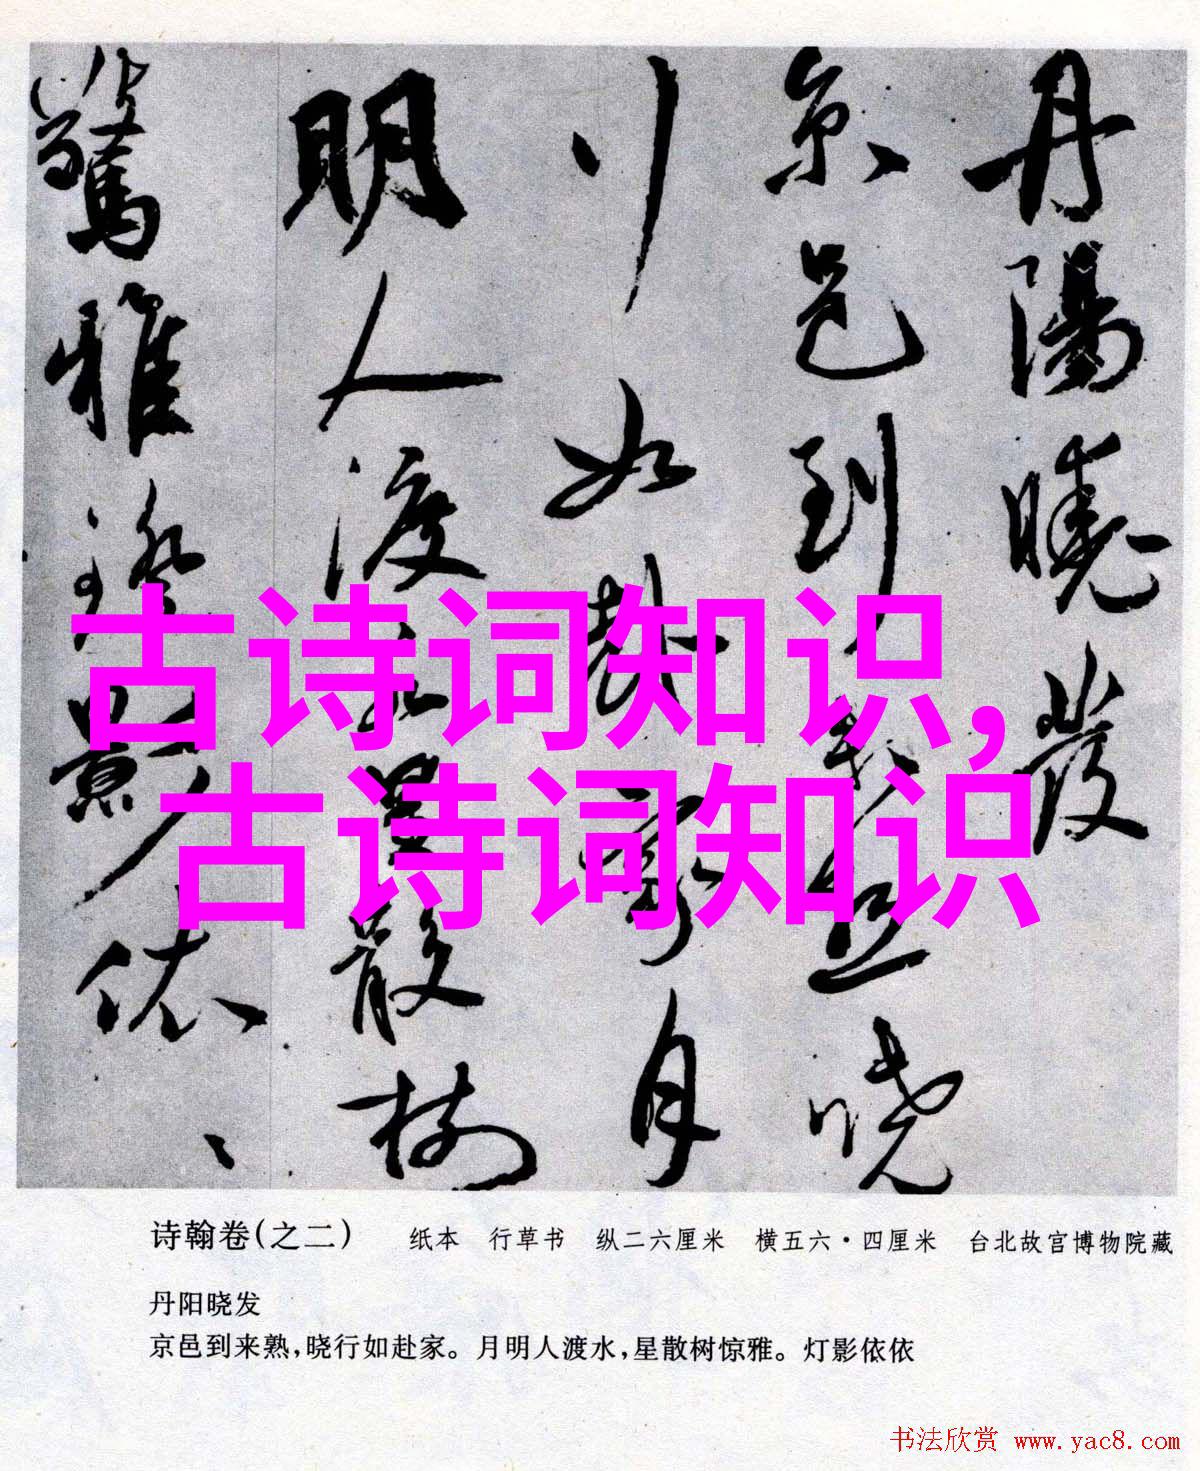 丹陽曉發
京邑到来熟晓
行如赴家月
明人渡水星散樹
驚雅燈影依、、
古诗词知识,
古诗词知识
诗翰卷(之二) 纸本 行草书 纵二六厘米 横五六·四厘米 台北故宫博物院藏
丹阳晓发
京邑到来熟,晓行如赴家。月明人渡水,星散树惊雅。灯影依依
书法欣赏 www.yac8.com